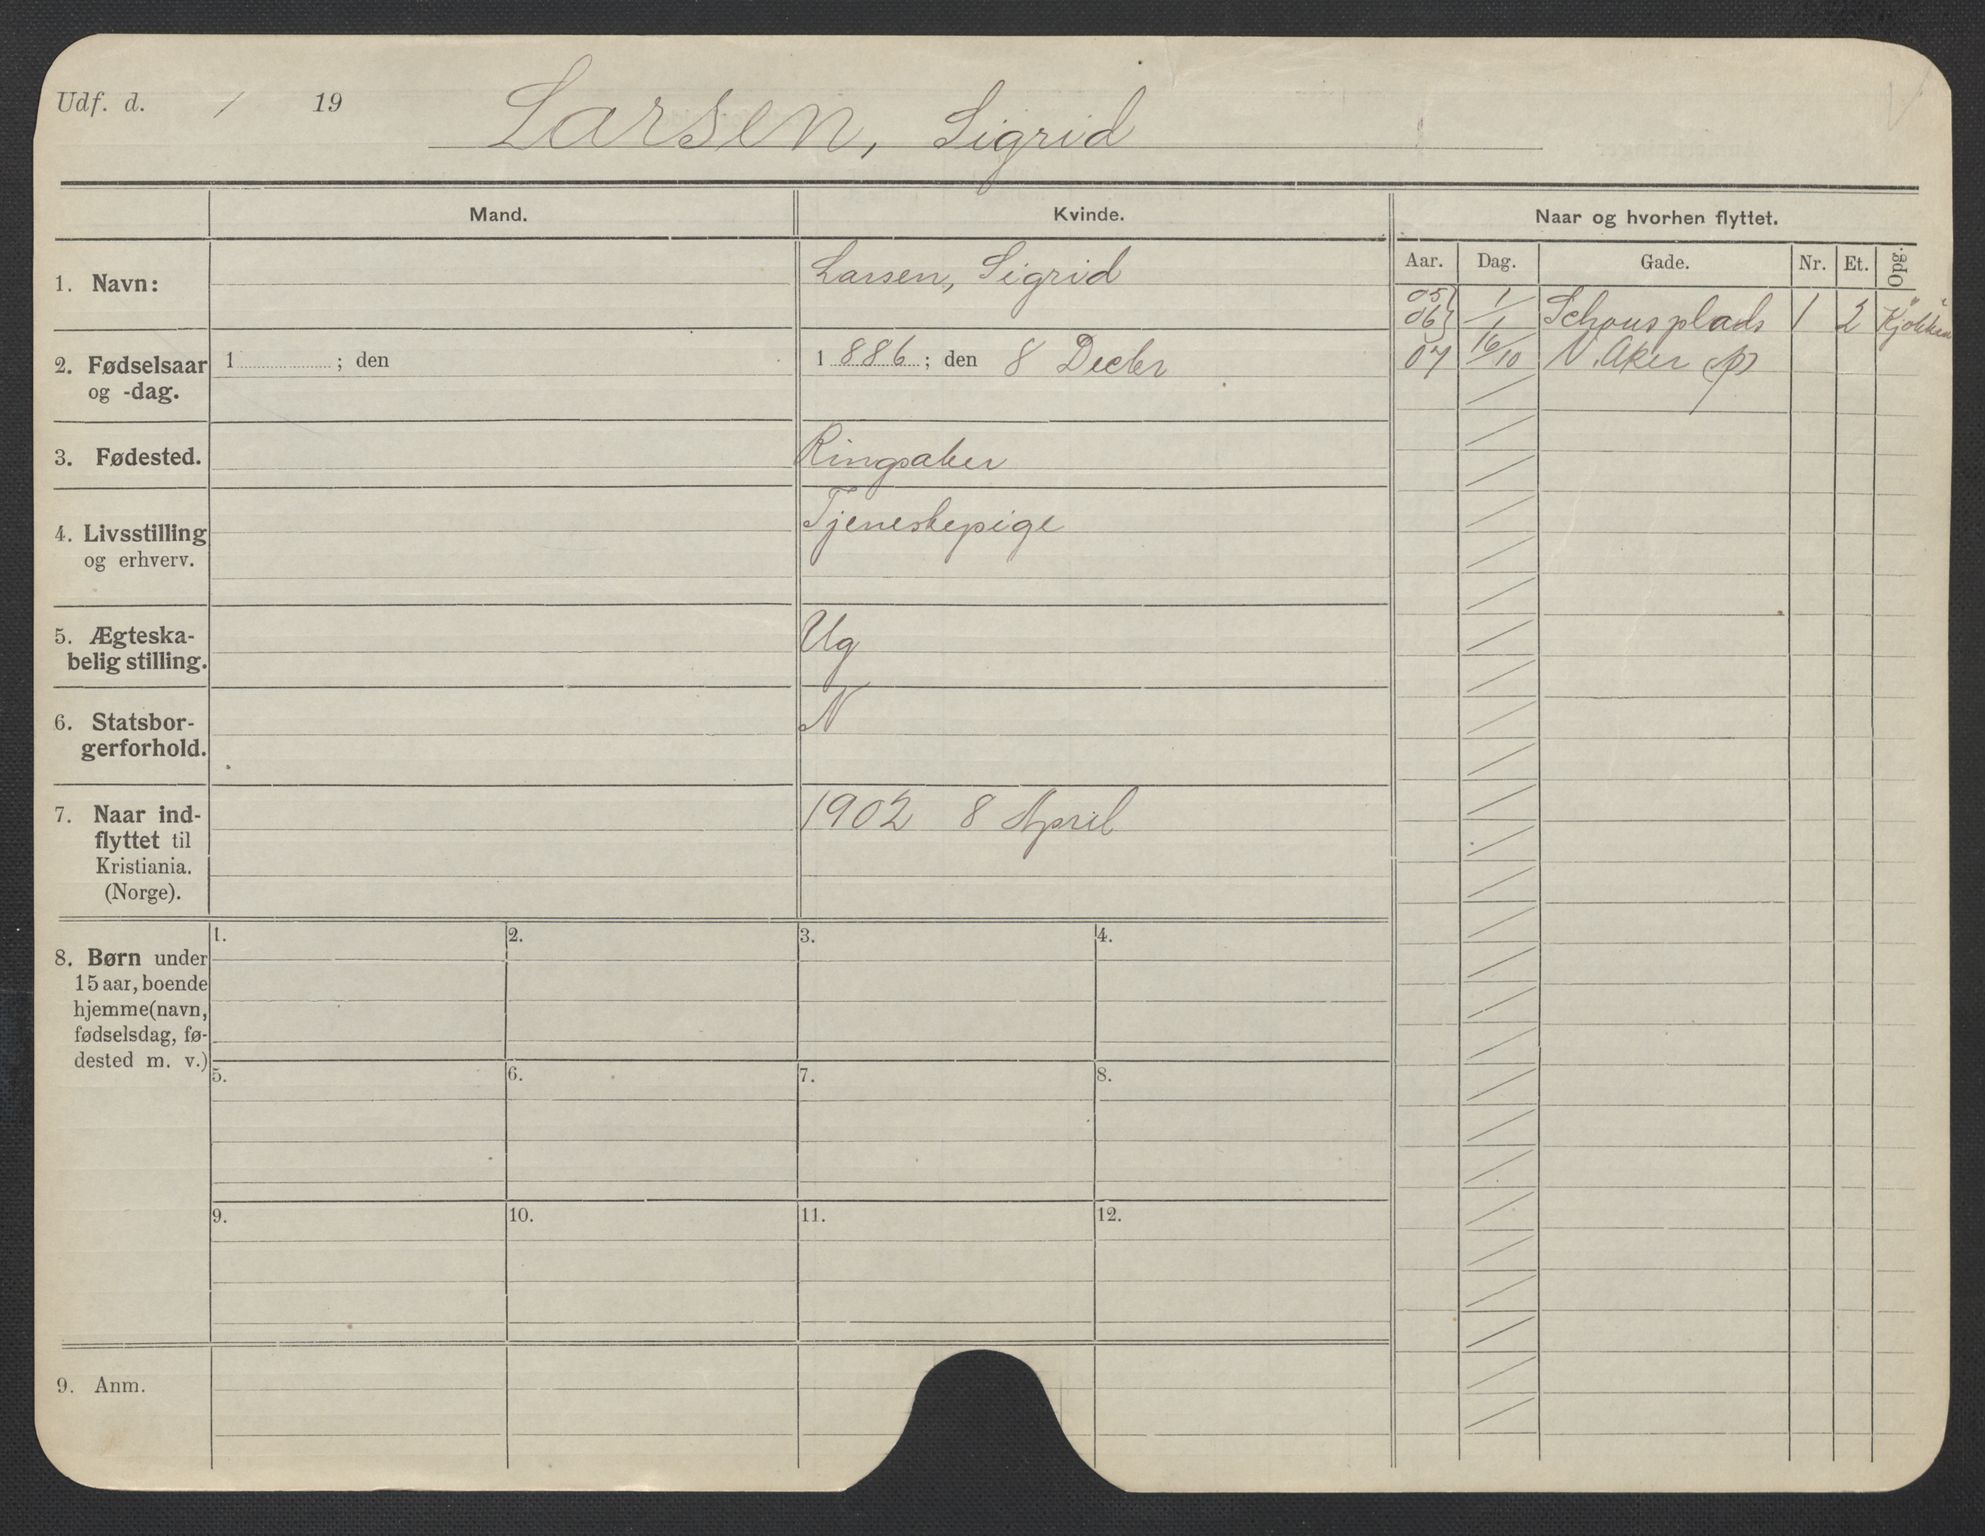 Udf. d. / 19
Larsen, Sigrid
Mand.
Kvinde.
Naar og hvorhen flyttet.
Aar. Dag. Gade. Nr. Et. Opg.
1. Navn:
Larsen, Sigrid
05 06 1/1 Schousplads 1 2 Kjökken
07 16/10 V. Aker (p)
2. Fødselsaar
og -dag.
1 ; den
1 886 ; den 8 Decbr
3. Fødested.
Ringsaker
4. Livsstilling
og erhverv.
Tjenestepige
5. Ægteska-
belig stilling.
Ug
6. Statsbor-
gerforhold.
N
7. Naar ind-
flyttet til
Kristiania.
(Norge).
1902 8 April
8. Børn under
15 aar, boende
hjemme (navn,
fødselsdag, fø-
dested m. v.)
1. 2. 3. 4.
5. 6. 7. 8.
9. 10. 11. 12.
9. Anm.